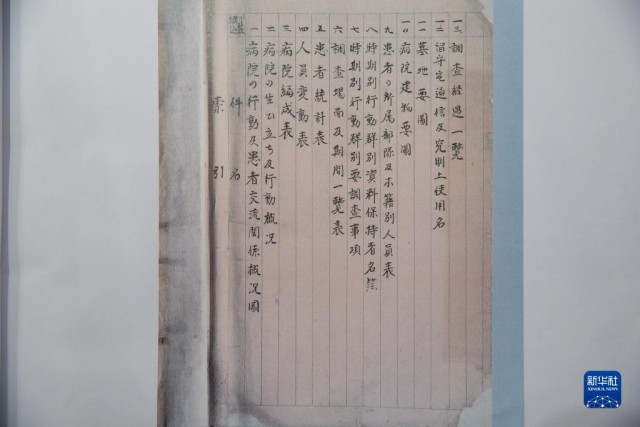 件名
索引
一 病院の行動及患者交流関係概況図
二 病院の生ひ立ち及行動概況
三 病院編成表
四 人員変動表
五 患者統計表
六 調査場面及期間一覧表
七 時期別行動群別要調査事項
八 時期別行動群別資料保持者名簿
九 患者の所属部隊及本籍別人員表
一〇 病院建物要図
一一 墓地要図
一二 留守宅通信及究明上使用名
一三 調査経過一覧
新华社
XINHUA NEWS